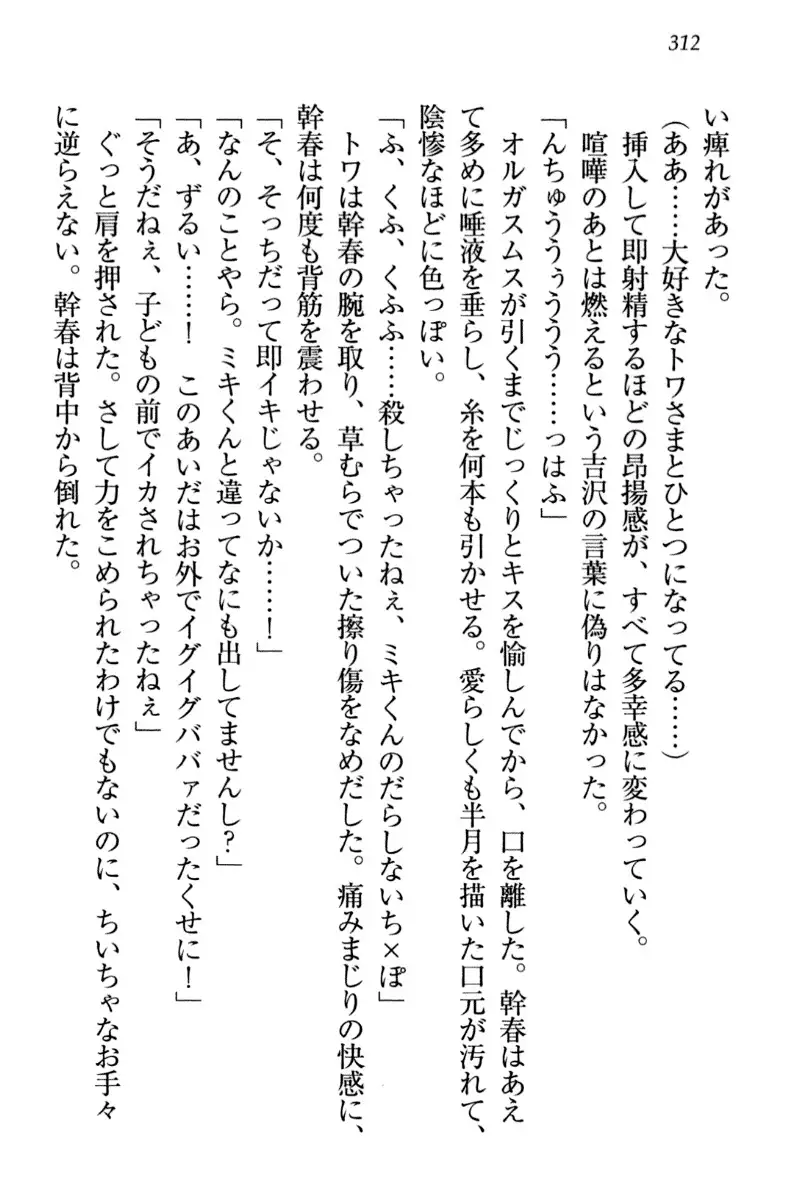 312
い痺れがあった。
(ああ……大好きなトワさまとひとつになってる……)
挿入して即射精するほどの昂揚感が、すべて多幸感に変わっていく。
喧嘩のあとは燃えるという吉沢の言葉に偽りはなかった。
「んちゅううぅううう……っはふ」
オルガスムスが引くまでじっくりとキスを愉しんでから、口を離した。幹春はあえ
て多めに唾液を垂らし、糸を何本も引かせる。愛らしくも半月を描いた口元が汚れて、
陰惨なほどに色っぽい。
「ふ、くふ、くふふ……殺しちゃったねぇ、ミキくんのだらしないち×ぽ」
トワは幹春の腕を取り、草むらでついた擦り傷をなめだした。痛みまじりの快感に、
幹春は何度も背筋を震わせる。
「そ、そっちだって即イキじゃないか……！」
「なんのことやら。ミキくんと違ってなにも出してませんし？」
「あ、ずるい……！　このあいだはお外でイグイグババァだったくせに！」
「そうだねぇ、子どもの前でイカされちゃったねぇ」
ぐっと肩を押された。さして力をこめられたわけでもないのに、ちいちゃなお手々
に逆らえない。幹春は背中から倒れた。